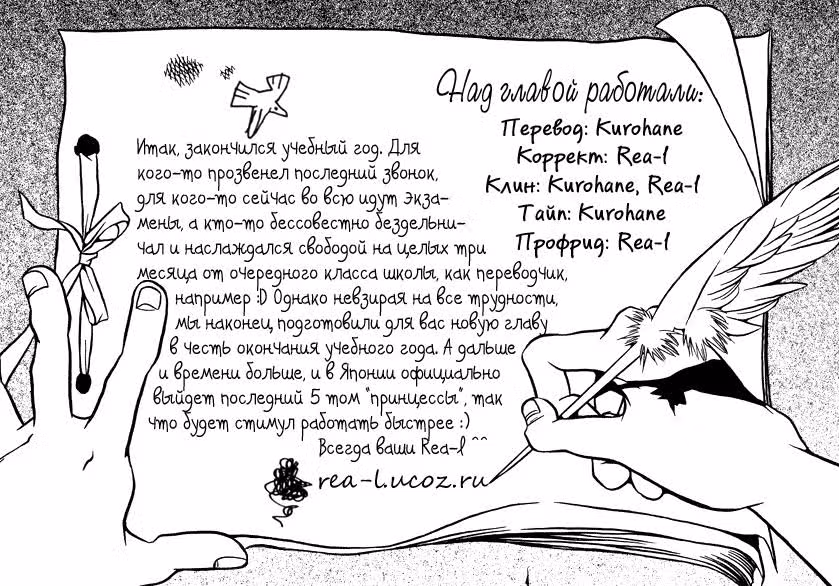 Над главой работали:
Перевод: Kurohane
Коррект: Rea-l
Клин: Kurohane, Rea-l
Тайп: Kurohane
Профрид: Rea-l
Итак, закончился учебный год. Для
кого-то прозвенел последний звонок,
для кого-то сейчас во всю идут экза-
мены, а кто-то бессовестно бездельни-
чал и наслаждался свободой на целых три
месяца от очередного класса школы, как переводчик,
например :D Однако невзирая на все трудности,
мы наконец подготовили для вас новую главу
в честь окончания учебного года. А дальше
и времени больше, и в Японии официально
выйдет последний 5 том "принцессы", так
что будет стимул работать быстрее :)
Всегда ваши Rea-l ^^
rea-l.ucoz.ru